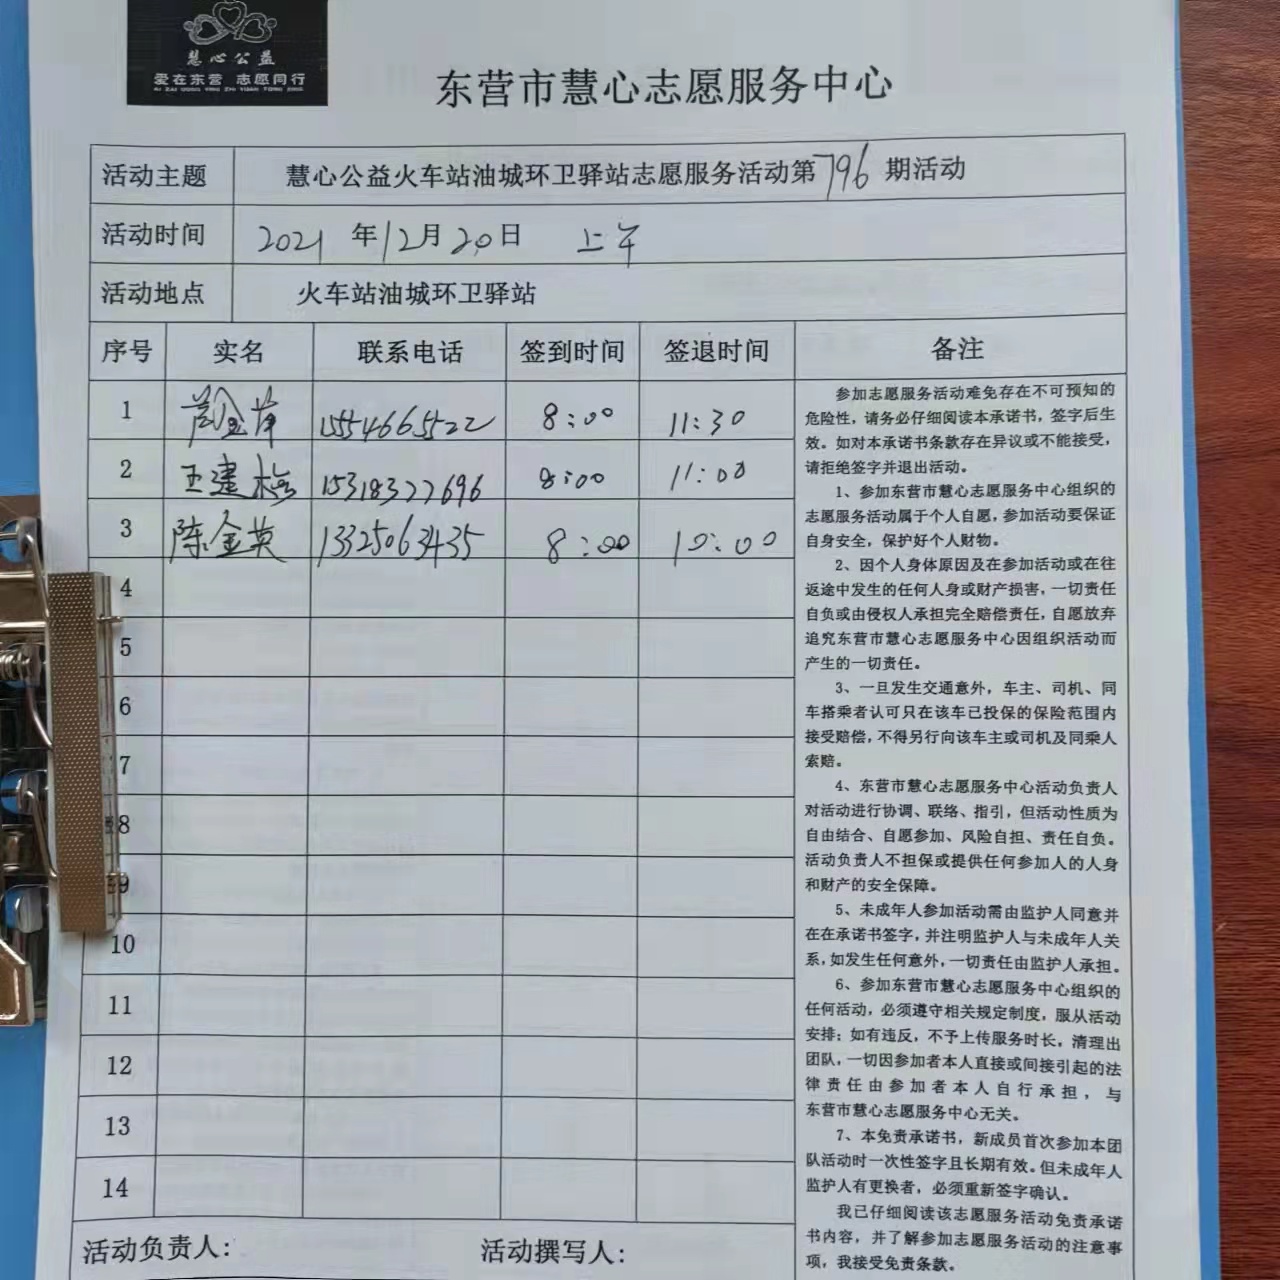 慧心公益
爱在东营 志愿同行
AI ZAI DONG YING ZHI YUAN TONG XING
东营市慧心志愿服务中心
活动主题 慧心公益火车站油城环卫驿站志愿服务活动第796期活动
活动时间 2021年12月20日 上午
活动地点 火车站油城环卫驿站
序号 实名 联系电话 签到时间 签退时间 备注
1 1554665522 8:00 11:30
2 王建 15318327696 8:00 11:00
3 陈金英 13325063435 8:00 10:00
4
5
6
7
8
9
10
11
12
13
14
参加志愿服务活动难免存在不可预知的
危险性，请务必仔细阅读本承诺书，签字后生
效。如对本承诺书条款存在异议或不能接受，
请拒绝签字并退出活动。
1、参加东营市慧心志愿服务中心组织的
志愿服务活动属于个人自愿，参加活动要保证
自身安全，保护好个人财物。
2、因个人身体原因及在参加活动或在往
返途中发生的任何人身或财产损害，一切责任
自负或由侵权人承担完全赔偿责任，自愿放弃
追究东营市慧心志愿服务中心因组织活动而
产生的一切责任。
3、一旦发生交通意外，车主、司机、同
车搭乘者认可只在该车已投保的保险范围内
接受赔偿，不得另行向该车主或司机及同乘人
索赔。
4、东营市慧心志愿服务中心活动负责人
对活动进行协调、联络、指引，但活动性质为
自由结合、自愿参加、风险自担、责任自负。
活动负责人不担保或提供任何参加人的人身
和财产的安全保障。
5、未成年人参加活动需由监护人同意并
在在承诺书签字，并注明监护人与未成年人关
系，如发生任何意外，一切责任由监护人承担。
6、参加东营市慧心志愿服务中心组织的
任何活动，必须遵守相关规定制度，服从活动
安排；如有违反，不予上传服务时长，清理出
团队，一切因参加者本人直接或间接引起的法
律责任由参加者本人自行承担，与
东营市慧心志愿服务中心无关。
7、本免责承诺书，新成员首次参加本团
队活动时一次性签字且长期有效。但未成年人
监护人有更换者，必须重新签字确认。
我已仔细阅读该志愿服务活动免责承诺
书内容，并了解参加志愿服务活动的注意事
项，我接受免责条款。
活动负责人： 活动撰写人：